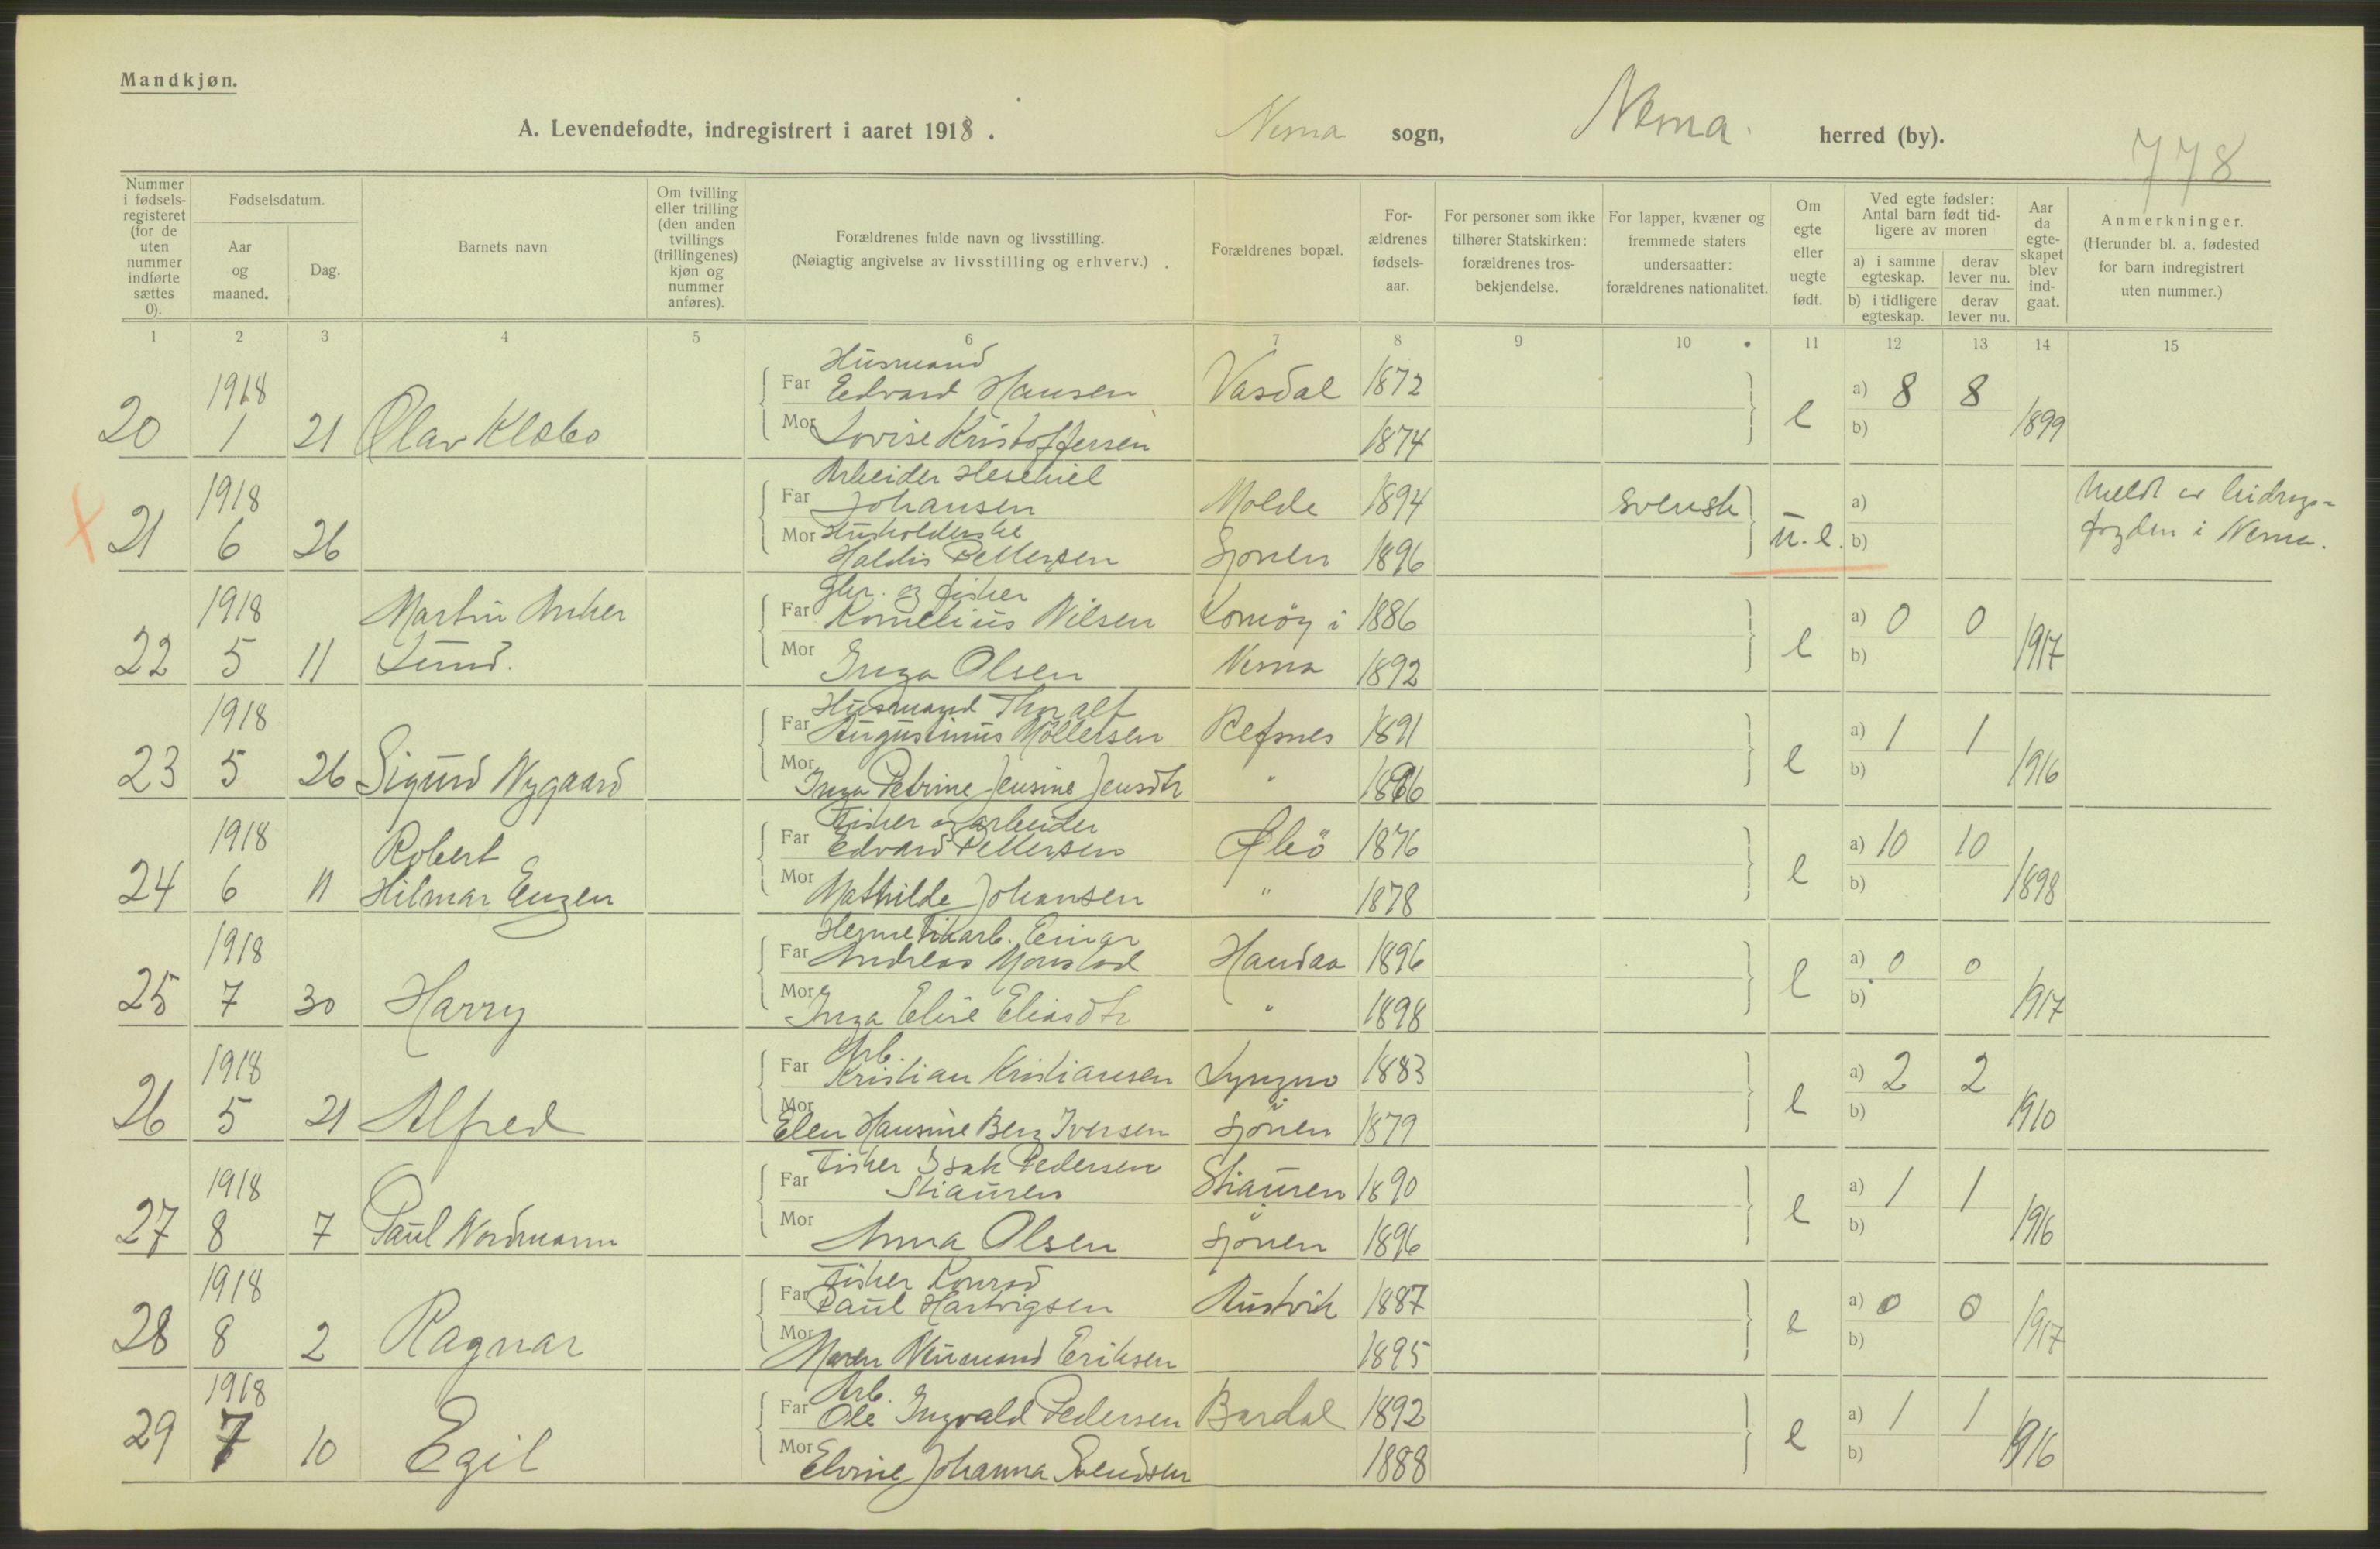 Mandkjøn.
A. Levendefødte, indregistrert i aaret 1918. Nesna sogn, Nesna. herred (by).
778
Nummer i fødsels-registeret (for de uten nummer indførte sættes 0).
Fødselsdatum.
Aar og maaned.
Dag.
Barnets navn
Om tvilling eller trilling (den anden tvillings (trillingenes) kjøn og nummer anføres).
Forældrenes fulde navn og livsstilling.
(Nøiagtig angivelse av livsstilling og erhverv.)
Forældrenes bopæl.
For-ældrenes fødsels-aar.
For personer som ikke tilhører Statskirken: forældrenes tros-bekjendelse.
For lapper, kvæner og fremmede staters undersaatter: forældrenes nationalitet.
Om egte eller uegte født.
Ved egte fødsler: Antal barn født tid-ligere av moren
a) i samme egteskap.
derav lever nu.
b) i tidligere egteskap.
derav lever nu.
Aar da egte-skapet blev ind-gaat.
Anmerkninger.
(Herunder bl. a. fødested for barn indregistrert uten nummer.)
1 2 3 4 5 6 7 8 9 10 11 12 13 14 15
Husmand
1918 Far Edvard Hansen Vasdal 1872 a) 8 8
20 1 21 Olav Klæbo Mor Lovise Kristoffersen 1874 e b) 1899
Arbeider Hesekiel
1918 Far Johansen Molde 1894 svensk a) Meldt er bidrags=
21 6 26 Mor Husholderske u.e. b) fogden i Nesna.
Haldis Pettersen Sjonen 1896
gbr. og fisker
1918 Martin Anker Far Kornelius Nilsen Tomøy i 1886 a) 0 0
22 5 11 Lund. Mor Inga Olsen Nesna 1892 e b) 1917
Husmand Thoralf
1918 Far Augustinus Möllersen Refsnes 1891 a) 1 1
23 5 26 Sigurd Nygaard Mor Inga Petrine Jensine Jensdtr " 1896 e b) 1916
Fisker og arbeider
1918 Robert Far Edvard Pettersen 1876 a) 10 10
24 6 11 Hilmar Eugen Mor Mathilde Johansen " 1878 e b) 1898
Hermetikarb. Einar
1918 Far Andreas Monstad Handaa 1896 a) 0 0
25 7 30 Harry Mor Inga Elise Eliasdtr " 1898 e b) 1917
Arb.
1918 Far Kristian Kristiansen 1883 a) 2 2
26 5 21 Alfred Mor Elen Hansine Berg Iversen Sjonen 1879 e b) 1910
Fisker Isak Pedersen
1918 Far Stiauren Stiauren 1890 a) 1 1
27 8 7 Paul Nordmann Mor Anna Olsen Sjonen 1896 e b) 1916
Fisker Konrad
1918 Far Paul Hartvigsen Rustvik 1887 a) 0 0
28 8 2 Ragnar Mor Maren Neumand Eriksen 1895 e b) 1917
Arb.
1918 Far Ole Ingvald Pedersen Bardal 1892 a) 1 1
29 7 10 Egil Mor Elvine Johanna Svendsen 1888 e b) 1916